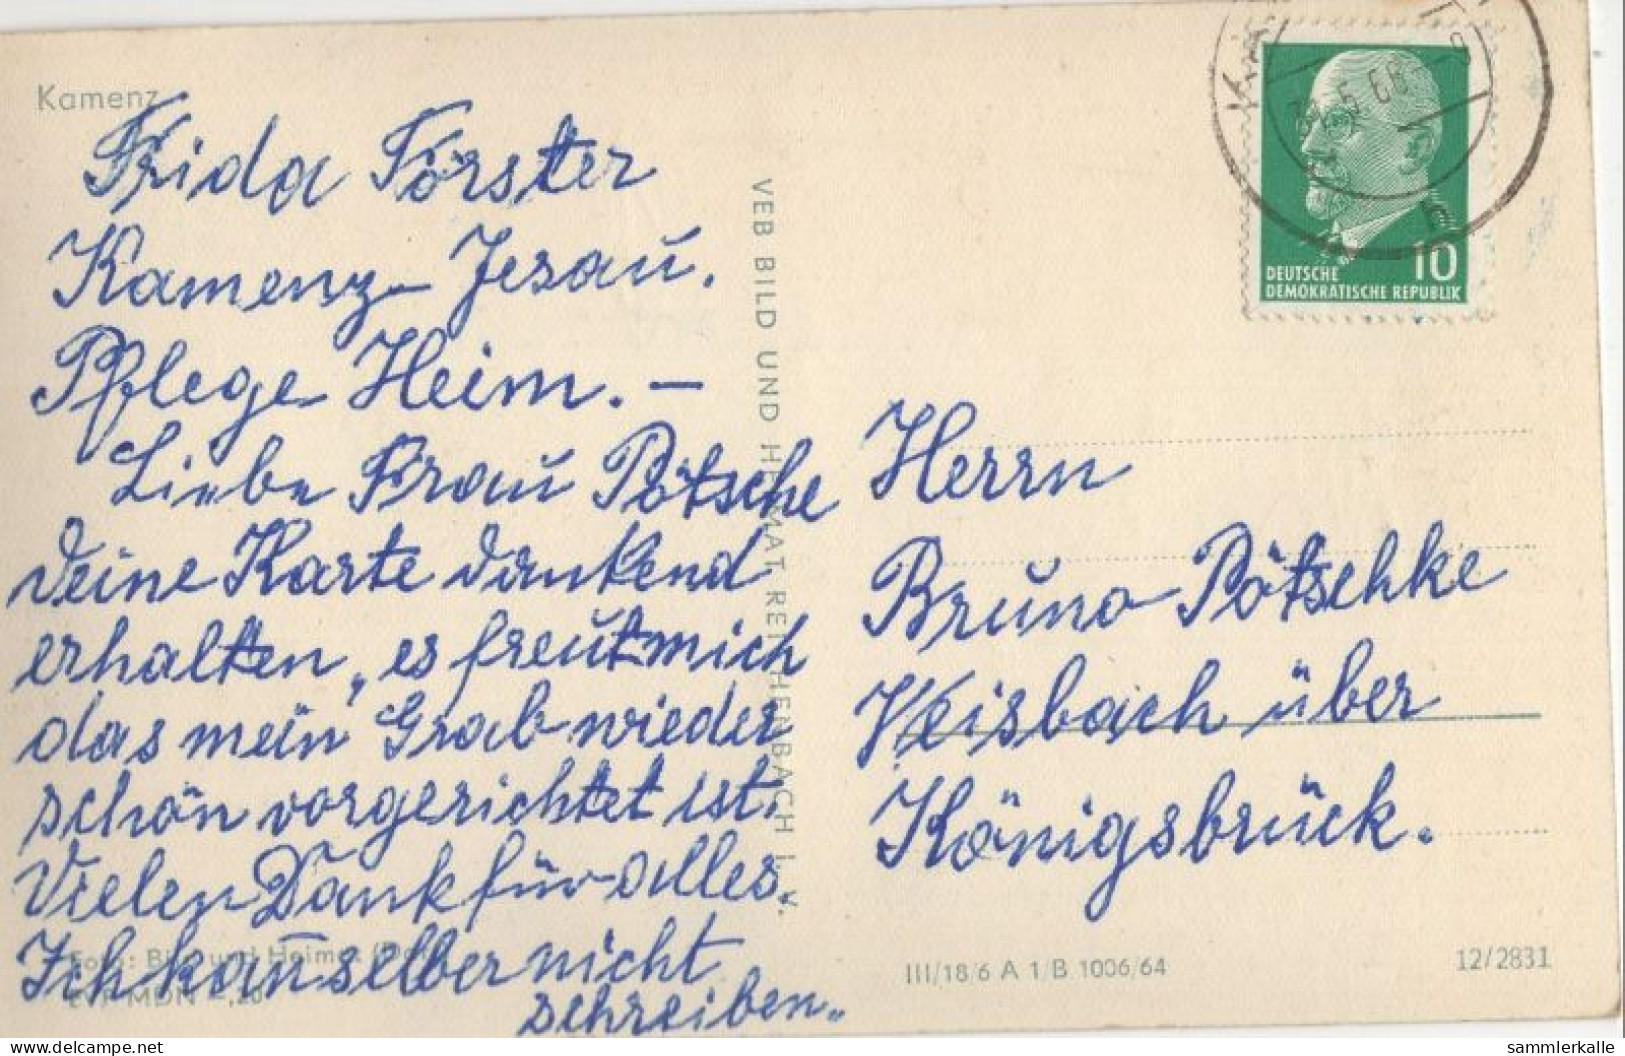 Kamenz
Frida Förster
Kamenz-Jesau.
Pflege-Heim. –
Liebe Frau Pötsche
deine Karte dankend
erhalten, es freut mich
das mein Grab wieder
schön vorgerichtet ist.
Vielen Dank für alles.
Ich kan̄ selber nicht
schreiben.
Foto: Bild und Heimat
EVP MDN -,20
VEB BILD UND HEIMAT REICHENBACH I. V.
DEUTSCHE 10
DEMOKRATISCHE REPUBLIK
5.66
Herrn
Bruno Pötschke
Weisbach über
Königsbrück.
III/18/6 A 1/B 1006/64
12/2831
www.delcampe.net
sammlerkalle